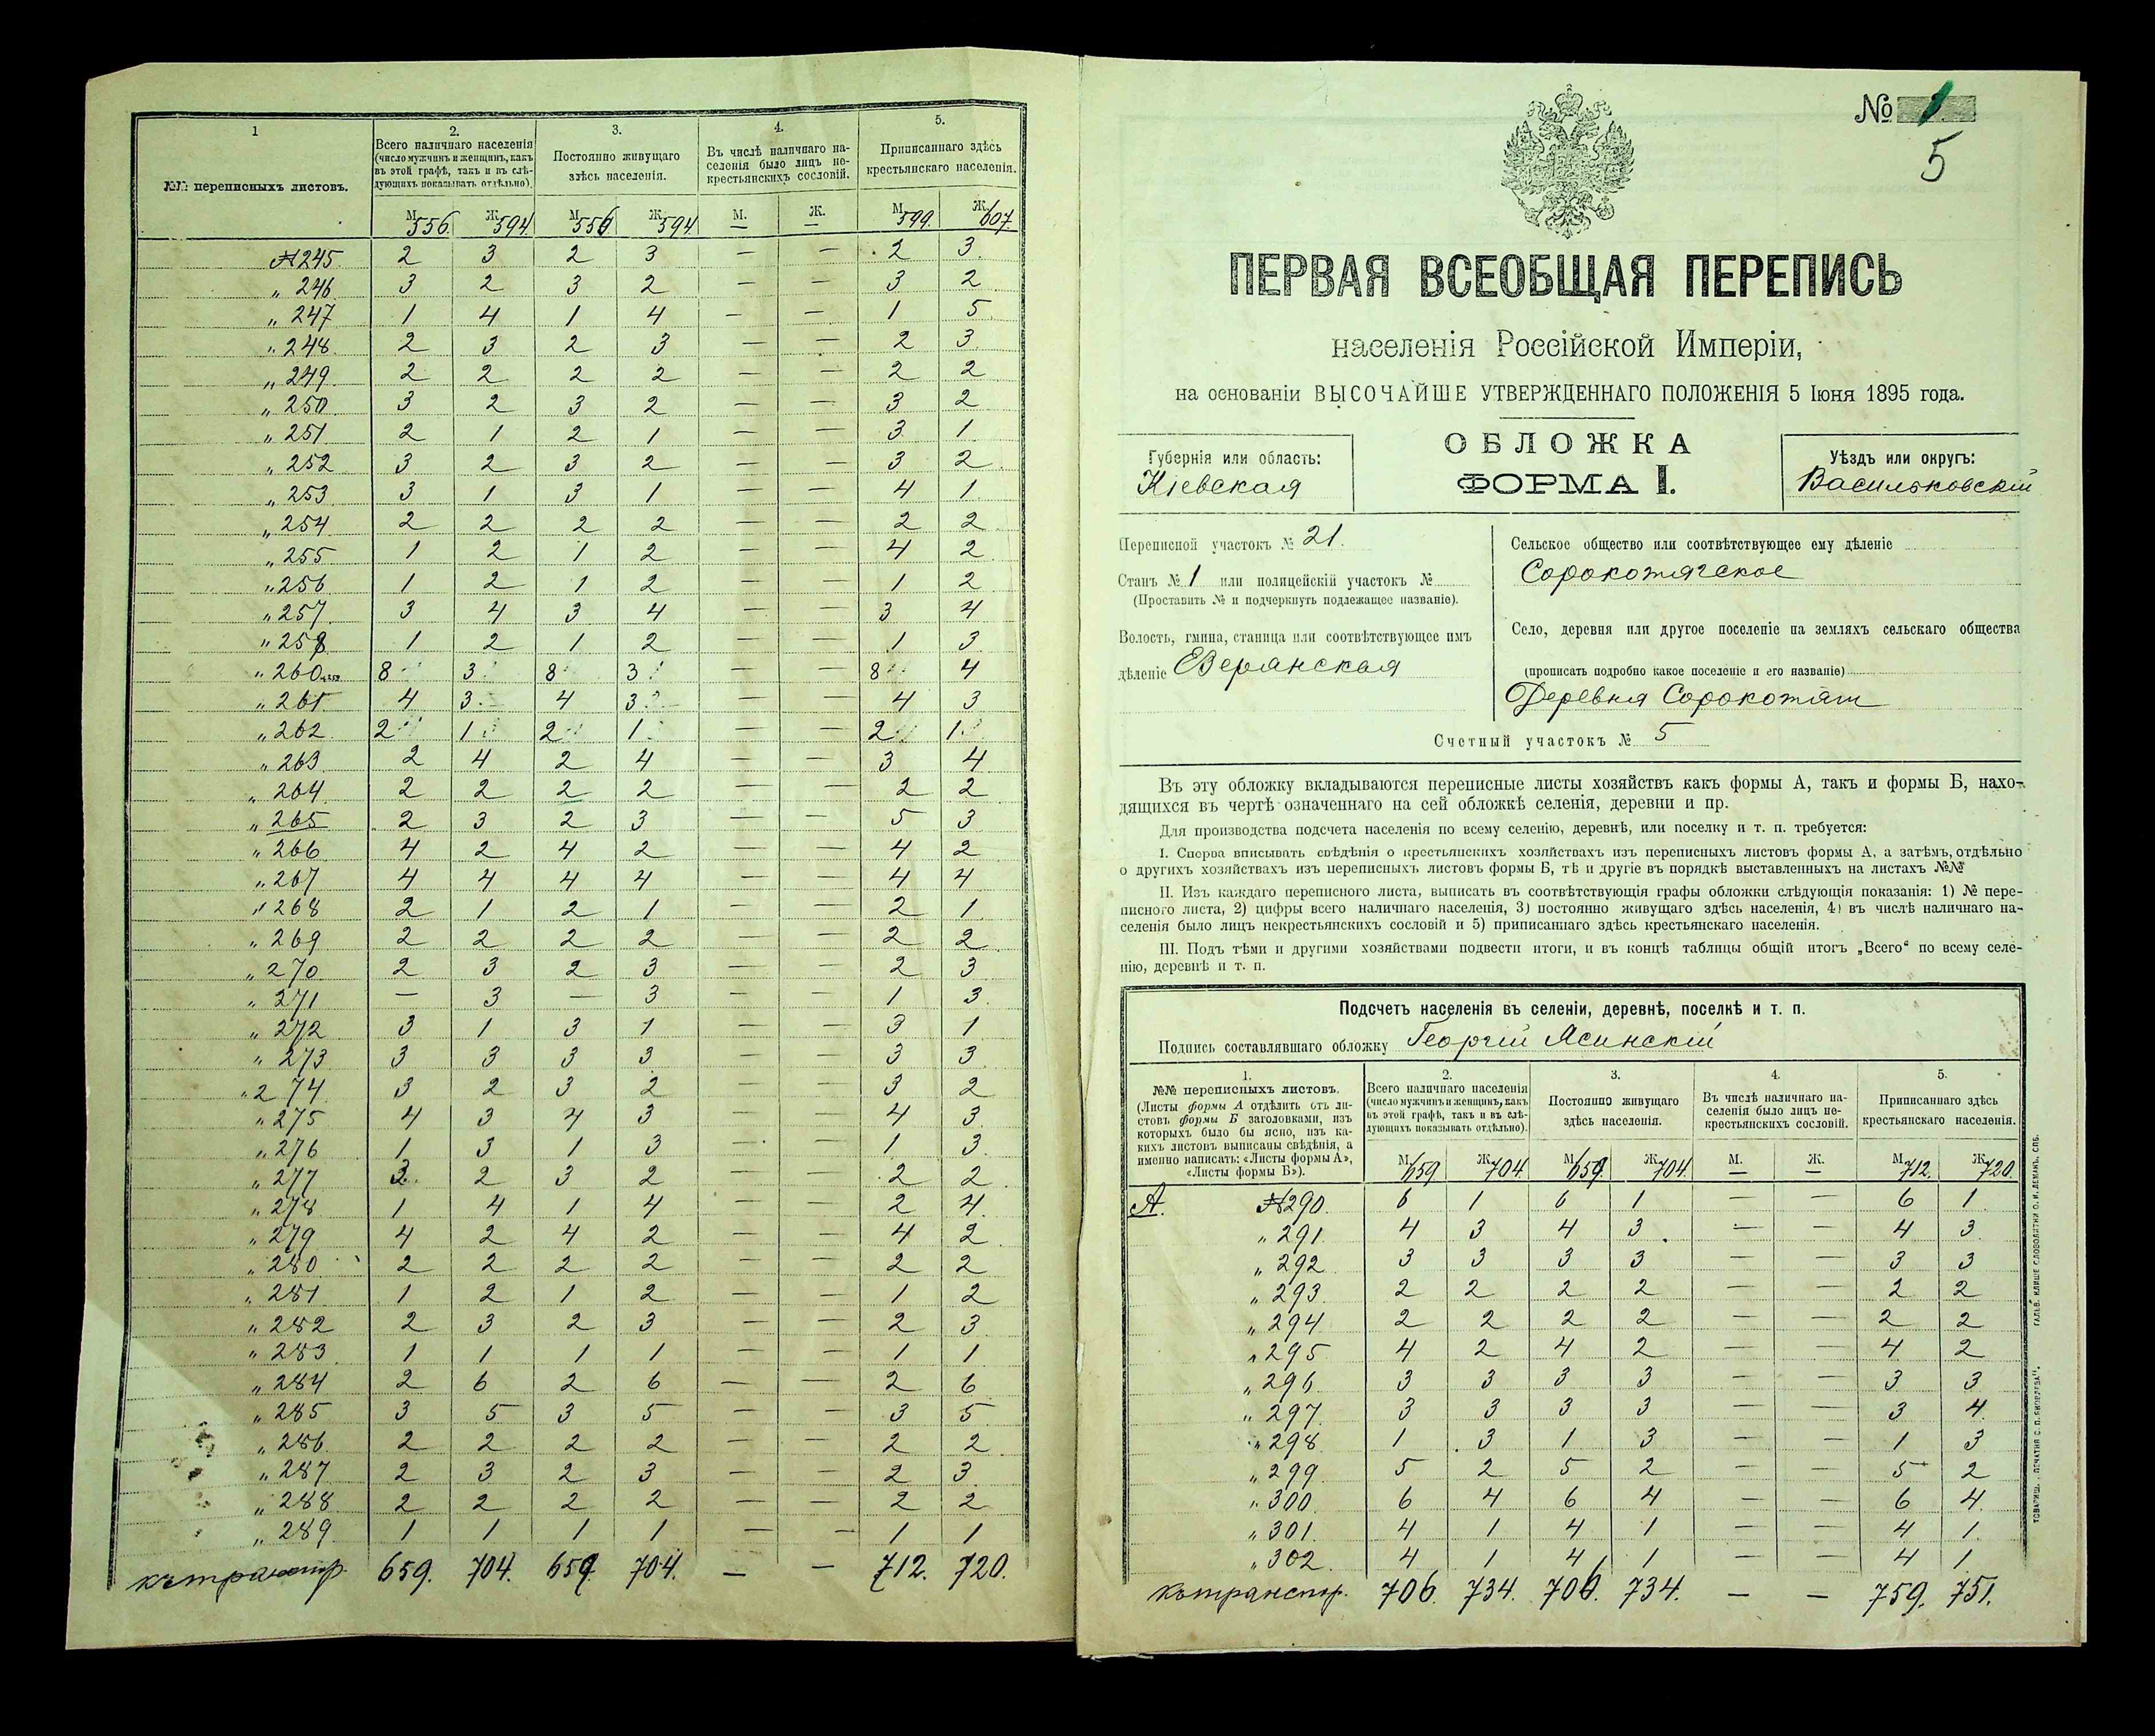 1
2.
3.
4.
5.
№№ переписныхъ листовъ.
Всего наличнаго населенія
(число мужчинъ и женщинъ, какъ
въ этой графѣ, такъ и въ слѣ-
дующихъ показывать отдѣльно).
Постоянно живущаго
здѣсь населенія.
Въ числѣ наличнаго на-
селенія было лицъ не-
крестьянскихъ сословій.
Приписаннаго здѣсь
крестьянскаго населенія.
М. 556. Ж. 594 М. 556 Ж. 594 М. — Ж. — М. 599. Ж. 607.
№ 245. 2 3 2 3 — — 2 3.
„ 246. 3 2 3 2 — — 3 2.
„ 247 1 4 1 4 — — 1 5.
„ 248. 2 3 2 3 — — 2 3.
„ 249. 2 2 2 2 — — 2 2.
„ 250. 3 2 3 2 — — 3 2
„ 251. 2 1 2 1 — — 3 1.
„ 252. 3 2 3 2 — — 3 2.
„ 253. 3 1 3 1 — — 4 1.
„ 254. 2 2 2 2 — — 2 2.
„ 255. 1 2 1 2 — — 4 2.
„ 256 1 2 1 2 — — 1 2
„ 257. 3 4 3 4 — — 3 4
„ 258 1 2 1 2 — — 1 3.
„ 260 8 3 8 3 — — 8 4
„ 261. 4 3 4 3 — — 4 3
„ 262. 2 1 2 1 — — 2 1
„ 263. 2 4 2 4 — — 3 4.
„ 264. 2 2 2 2 — — 2 2
„ 265 2 3 2 3 — — 5 3
„ 266 4 2 4 2 — — 4 2.
„ 267 4 4 4 4 — — 4 4
„ 268 2 1 2 1 — — 2 1.
„ 269 2 2 2 2 — — 2 2.
„ 270 2 3 2 3 — — 2 3.
„ 271 — 3 — 3 — — 1 3.
„ 272 3 1 3 1 — — 3 1
„ 273 3 3 3 3 — — 3 3.
„ 274 3 2 3 2 — — 3 2
„ 275 4 3 4 3 — — 4 3.
„ 276 1 3 1 3 — — 1 3.
„ 277 3 2 3 2 — — 2 2.
„ 278 1 4 1 4 — — 2 4.
„ 279 4 2 4 2 — — 4 2.
„ 280 2 2 2 2 — — 2 2
„ 281 1 2 1 2 — — 1 2
„ 282 2 3 2 3 — — 2 3.
„ 283. 1 1 1 1 — — 1 1
„ 284 2 6 2 6 — — 2 6
„ 285 3 5 3 5 — — 3 5
„ 286. 2 2 2 2 — — 2 2.
„ 287 2 3 2 3 — — 2 3.
„ 288. 2 2 2 2 — — 2 2
„ 289. 1 1 1 1 — — 1 1
659. 704. 659 704. — — 712. 720.
№ 1
5
ПЕРВАЯ ВСЕОБЩАЯ ПЕРЕПИСЬ
населенія Россійской Имперіи,
на основаніи ВЫСОЧАЙШЕ УТВЕРЖДЕННАГО ПОЛОЖЕНІЯ 5 Іюня 1895 года.
ОБЛОЖКА
ФОРМА I.
Губернія или область:
Кіевская
Уѣздъ или округъ:
Васильковскій
Переписной участокъ № 21.
Станъ № 1 или полицейскій участокъ №
(Проставить № и подчеркнуть подлежащее названіе).
Волость, гмина, станица или соотвѣтствующее имъ
дѣленіе
Сельское общество или соотвѣтствующее ему дѣленіе
Сорокотягское
Село, деревня или другое поселеніе на земляхъ сельскаго общества
(прописать подробно какое поселеніе и его названіе)
Деревня Сорокотяги
Счетный участокъ № 5
Въ эту обложку вкладываются переписные листы хозяйствъ какъ формы А, такъ и формы Б, нахо-
дящихся въ чертѣ означеннаго на сей обложкѣ селенія, деревни и пр.
Для производства подсчета населенія по всему селенію, деревнѣ, или поселку и т. п. требуется:
I. Сперва вписывать свѣдѣнія о крестьянскихъ хозяйствахъ изъ переписныхъ листовъ формы А, а затѣмъ, отдѣльно
о другихъ хозяйствахъ изъ переписныхъ листовъ формы Б, тѣ и другіе въ порядкѣ выставленныхъ на листахъ №№
II. Изъ каждаго переписного листа, выписать въ соотвѣтствующія графы обложки слѣдующія показанія: 1) № пере-
писного листа, 2) цифры всего наличнаго населенія, 3) постоянно живущаго здѣсь населенія, 4) въ числѣ наличнаго на-
селенія было лицъ некрестьянскихъ сословій и 5) приписаннаго здѣсь крестьянскаго населенія.
III. Подъ тѣми и другими хозяйствами подвести итоги, и въ концѣ таблицы общій итогъ „Всего“ по всему селе-
нію, деревнѣ и т. п.
Подсчетъ населенія въ селеніи, деревнѣ, поселкѣ и т. п.
Подпись составлявшаго обложку Георгій Ясинскій
1.
№№ переписныхъ листовъ.
(Листы формы А отдѣлить отъ ли-
стовъ формы Б заголовками, изъ
которыхъ было бы ясно, изъ ка-
кихъ листовъ выписаны свѣдѣнія, а
именно написать: «Листы формы А»,
«Листы формы Б»).
2.
Всего наличнаго населенія
(число мужчинъ и женщинъ, какъ
въ этой графѣ, такъ и въ слѣ-
дующихъ показывать отдѣльно).
3.
Постоянно живущаго
здѣсь населенія.
4.
Въ числѣ наличнаго на-
селенія было лицъ не-
крестьянскихъ сословій.
5.
Приписаннаго здѣсь
крестьянскаго населенія.
М. 659 Ж. 704 М. 659. Ж. 704. М. — Ж. — М. 712. Ж. 720.
А. № 290. 6 1 6 1 — — 6 1.
„ 291. 4 3 4 3 — — 4 3
„ 292 3 3 3 3 — — 3 3
„ 293. 2 2 2 2 — — 2 2
„ 294 2 2 2 2 — — 2 2
„ 295 4 2 4 2 — — 4 2
„ 296 3 3 3 3 — — 3 3
„ 297. 3 3 3 3 — — 3 4
„ 298 1 3 1 3 — — 1 3
„ 299 5 2 5 2 — — 5 2
„ 300 6 4 6 4 — — 6 4.
„ 301. 4 1 4 1 — — 4 1.
„ 302. 4 1 4 1 — — 4 1.
Къ транспор. 706. 734. 706. 734. — — 759. 751.